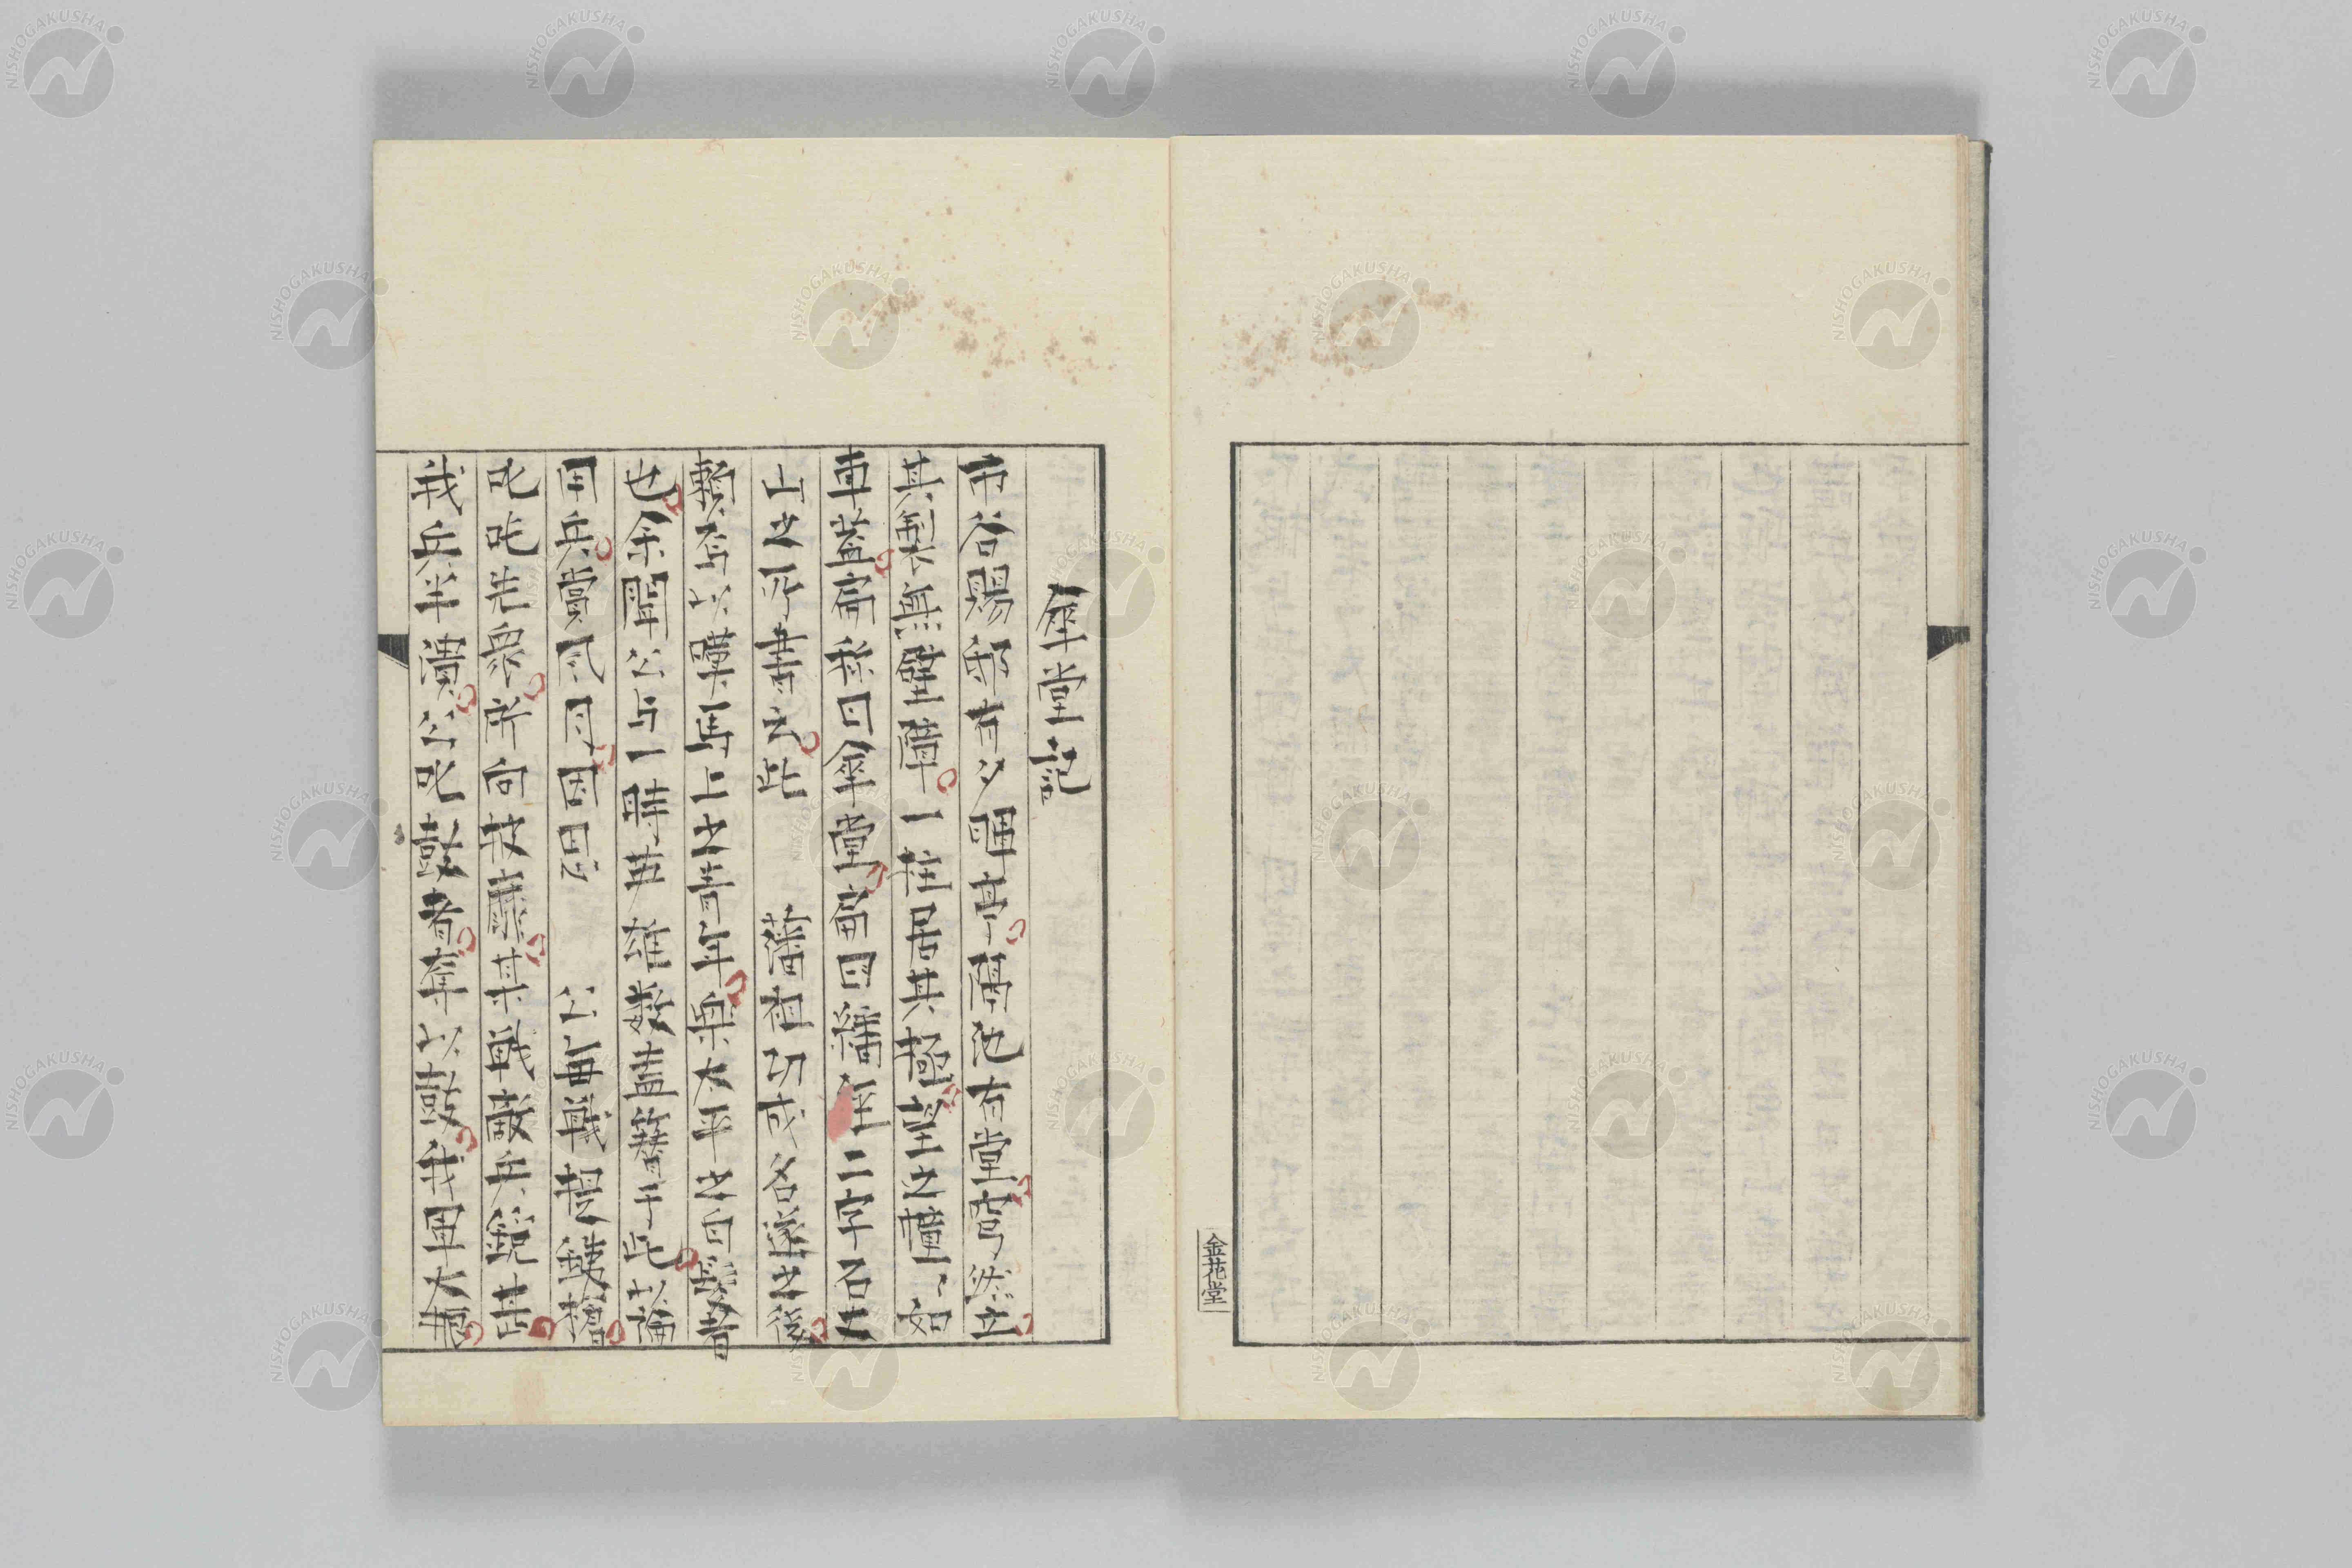 金花堂
傘堂記
市谷賜邸有夕暉亭萬池有堂穹然立
其製無壁障一柱居其極望之童々如
車蓋扁称曰傘堂扁曰籓 二字石丈
山之所書云此 藩祖功成名遂之後
繋舟以 馬上之青年樂太平之白髮者
也余聞公与一時英雄数盡簪于此以論
用兵賞風月因思 公毎戰提鉄槍
叱咤先衆所向披靡某戰敵兵鋭甚
我兵半潰公叱鼓者奪以鼓我軍大振